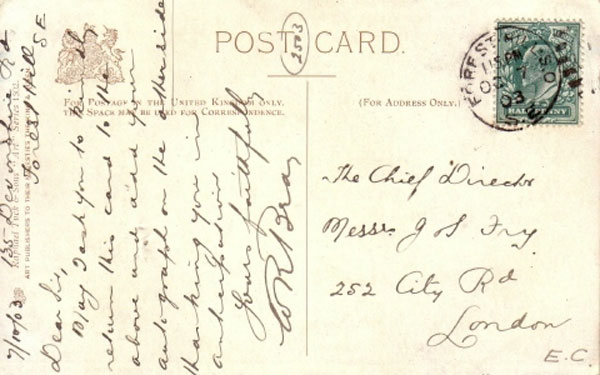 POST CARD.
2503
FOR POSTAGE IN THE UNITED KINGDOM ONLY.
THIS SPACE MAY BE USED FOR CORRESPONDENCE.
(FOR ADDRESS ONLY.)
FOREST HILL S.O.
1.15 PM
OC 7
03
S.E.
HALFPENNY
The Chief Director
Messrs J S Fry
252 City Rd
London
E.C.
135 Devonshire Rd
Forest Hill
S.E.
7/10/03
Dear Sir,
May I ask you to kindly
return this card to the
above and add your
autograph on the other side
thanking you in
anticipation
Yours faithfully
W R Bray
Raphael Tuck & Sons "Art" Series 1502.
ART PUBLISHERS TO THEIR MAJESTIES THE